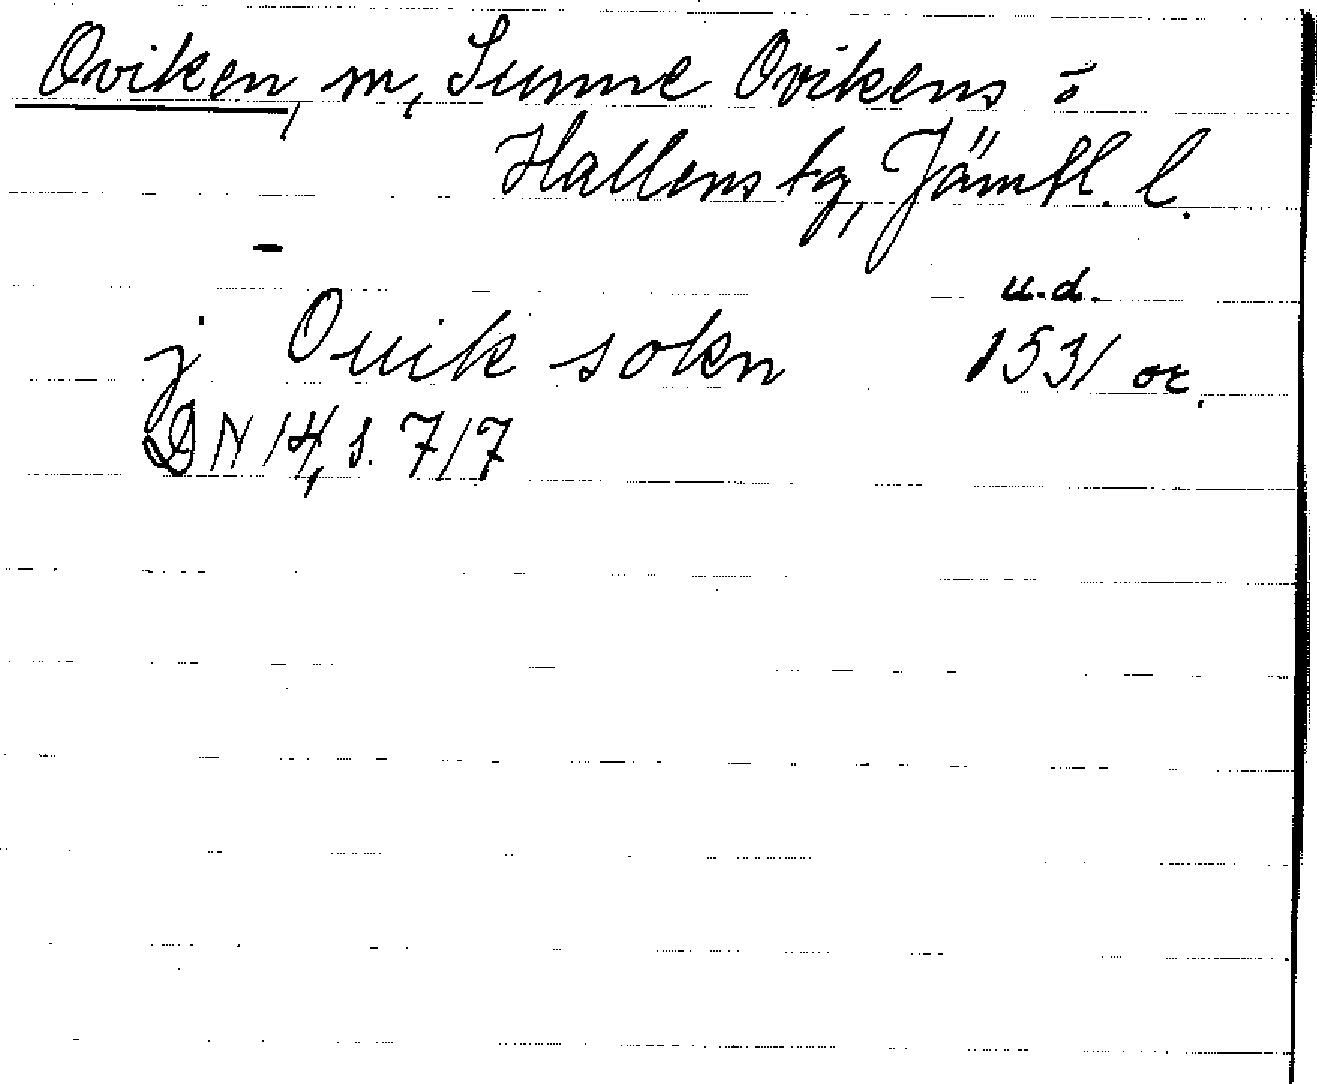 Oviken, m, Sunne Ovikens o
Hallens tg, Jämtl. l.
-
u.d.
j Ouik sokn 1531 or.
DN 14, s. 717